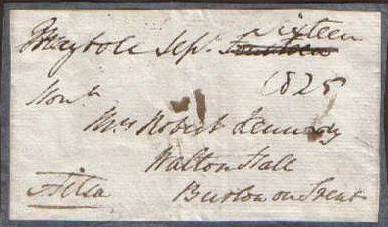 Sixteen
Maybole Sepr. Fourteen
1825
Honb
Mrs Robert Kennedy
Walton Hall
Ailsa Burton on Trent